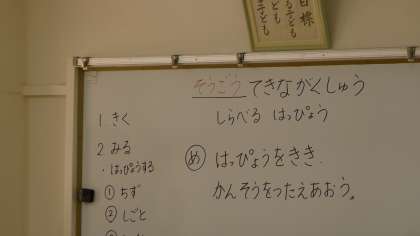 目標
子ども
子ども
そうごうてきながくしゅう
しらべる はっぴょう
1. きく
2 みる
・はっぴょうする
① ちず
② しごと
め はっぴょうをきき.
かんそうをつたえあおう。